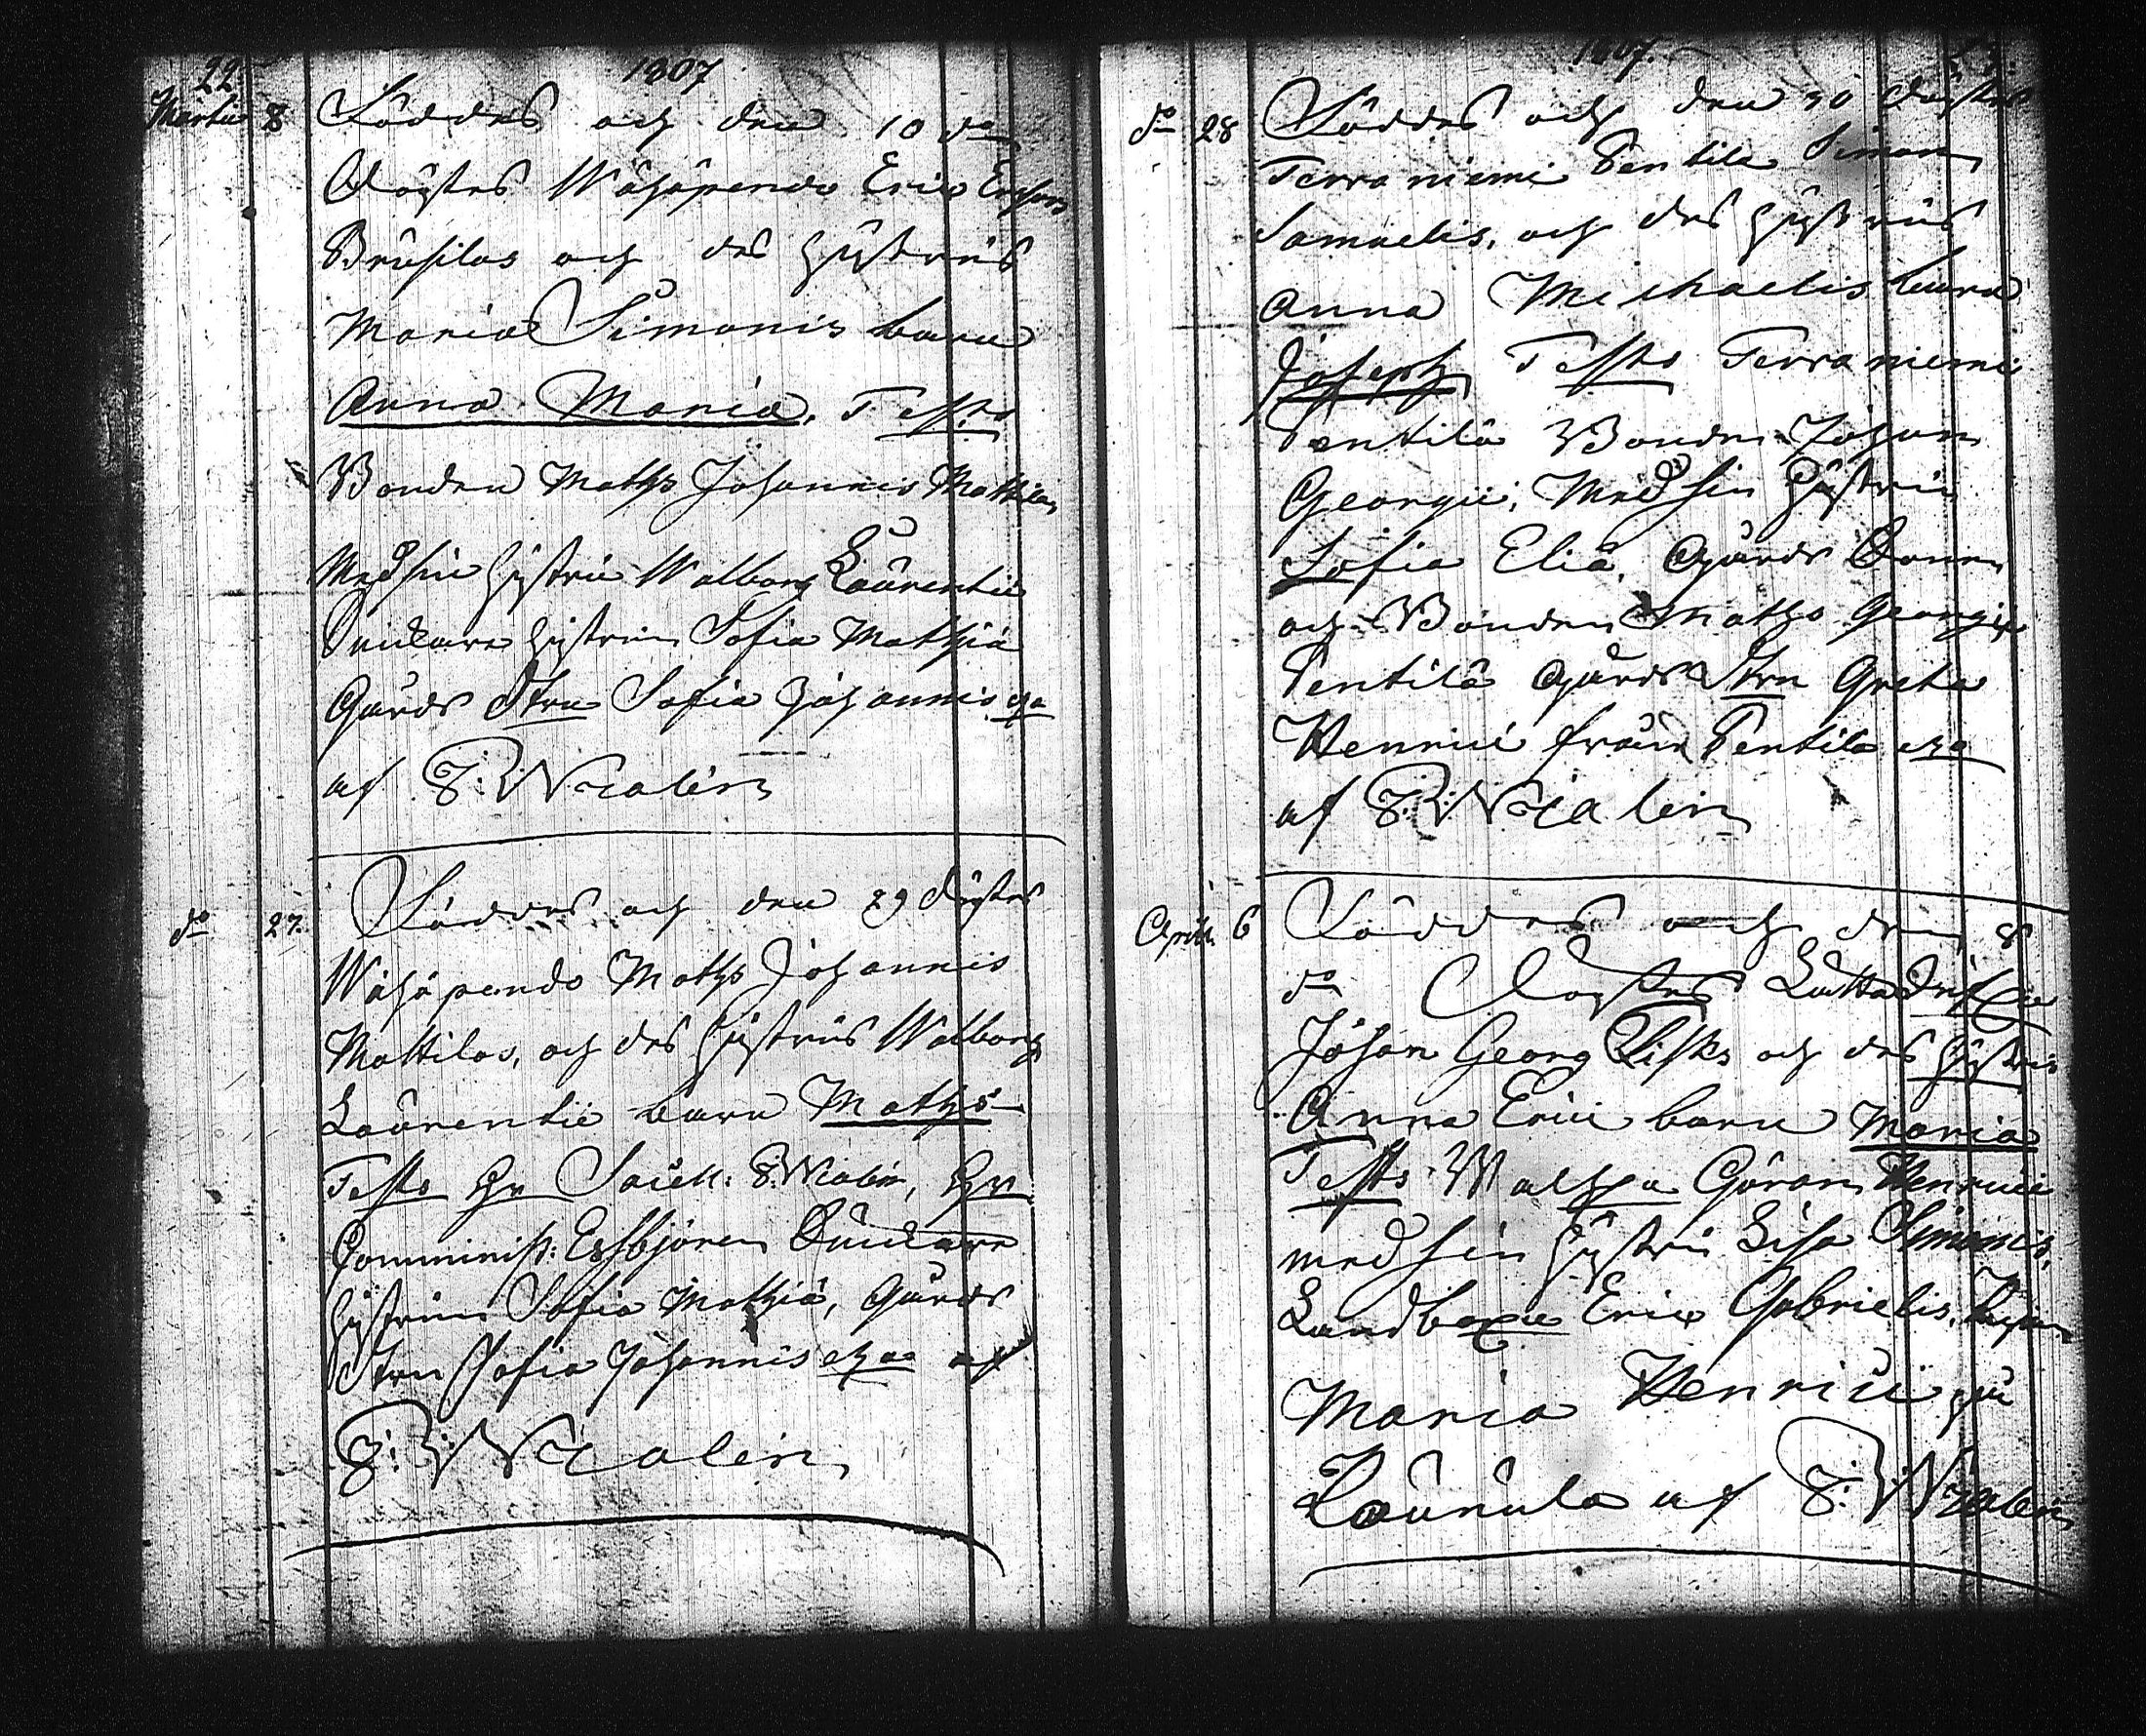 22
1807
Martii 8 Föddes och den 10 do
Döptes Wähäpendo Eric Erss
Brusilas och des hustrus
Maria Simonis barn
Anna Maria. Testes
Bonden Maths Johannis Mattila
Med sin hustru Walborg Laurentii
hustrun Sofia Mathiä
Gårds Sofia Johannis
af F: Wialén
do 27. Föddes och den 29 döptes
Wähäpendo Maths Johannis
Mattilas, och des hustrus Walborg
Laurentii barn Maths
Testes Hr F: Wialén, Hr
Comminist: Essbjören
hustrun Sofia Mathiä, Gårds
Sofia Johannis af
F: Wialén
1807.
do 28 Föddes och den 30 döptes
Terraniemi Pentilä Simon
Samuelis, och des hustrus
Anna Michaelis barn
Joseph Testes Terraniemi
Pentilä Bonden Johan
Georgii, Med sin hustru
Sofia Eliä, Gårds
och Bonden Maths Georgii
Pentilä Gårds Greta
Henrici från Pentilä
af F: Wialén
Aprill 6 Föddes och den 8
do Döptes
Johan Georg och des hustrus
Anna Erici barn Maria
Testes Göran Henrici
med sin hustru Lisa Simonis,
Eric Gabrielis,
Maria Henrici på
Laurula af F: Wialén